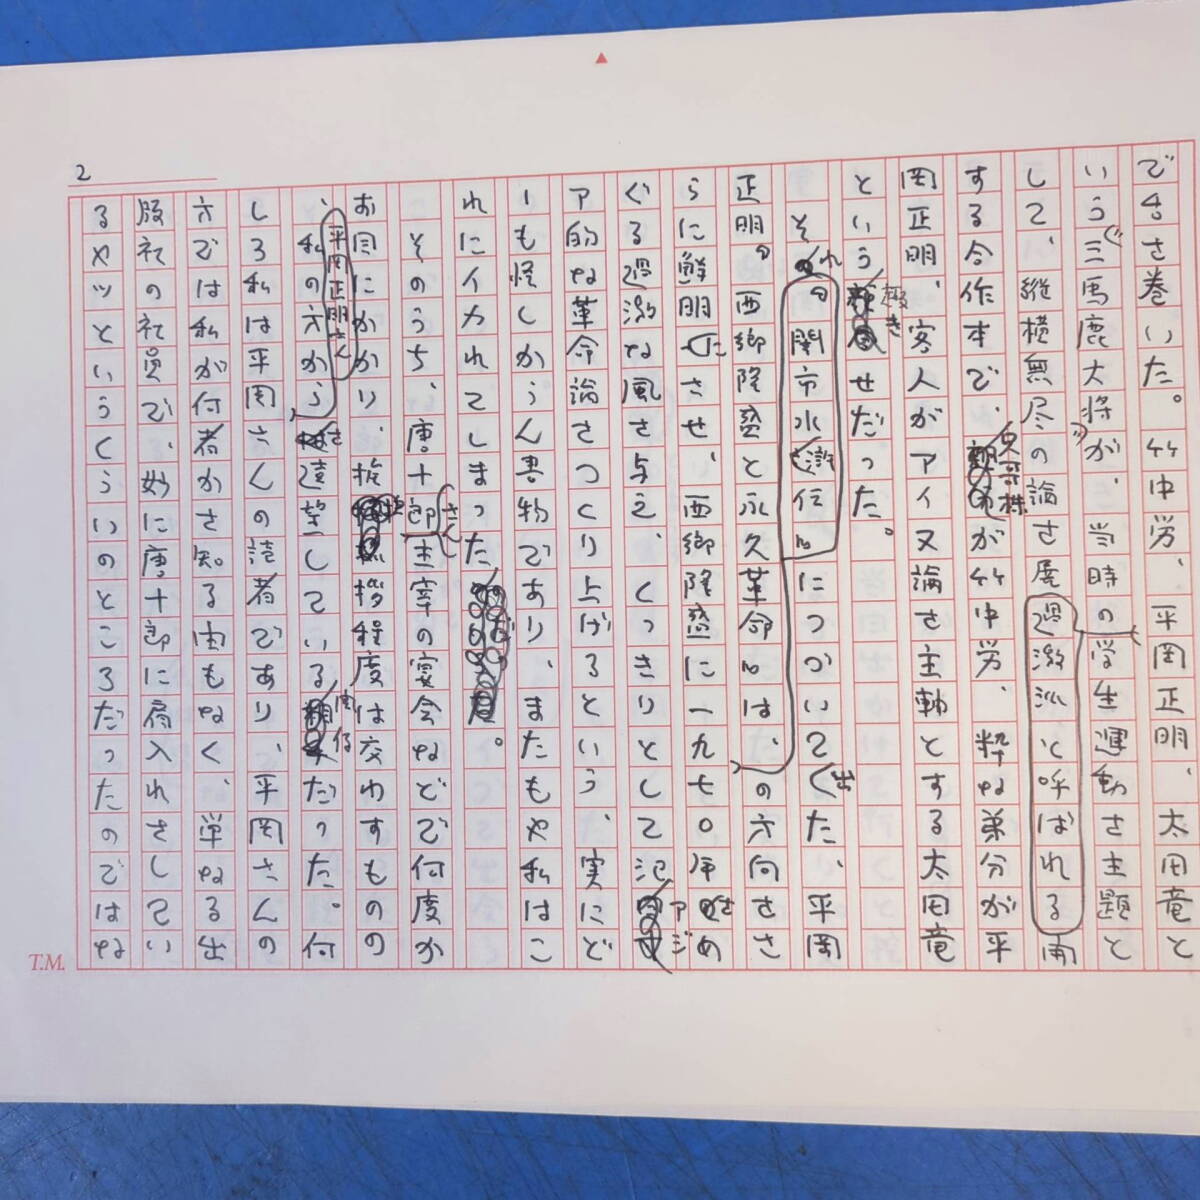 2
で舌を巻いた。竹中労、平岡正明、太田竜と
いう〝三馬鹿大将〟が、当時の学生運動を主題と
して、縦横無尽の論を展過激派と呼ばれる開
する合作本で、兄哥株が竹中労、粋な弟分が平
岡正明、客人がアイヌ論を主軸とする太田竜
という趣きせだった。
それの『闇市水滸伝』につづいて出た、平岡
正明の『西郷隆盛と永久革命』は、の方向をさ
らに鮮明にさせ、西郷隆盛に一九七〇年をめ
ぐる過激な風を与え、くっきりとして汎アジ
ア的な革命論をつくり上げるという、実にど
ーも怪しからん書物であり、またもや私はこ
れにイカれてしまった。
そのうち、唐十郎さん主宰の宴会などで何度か
お目にかかり、挨拶程度は交わすものの
、私の方から平岡正明さんを遠望している関係だった。何
しろ私は平岡さんの読者であり、平岡さんの
方では私が何者かを知る由もなく、単なる出
版社の社員で、妙に唐十郎に肩入れをしてい
るヤツというくらいのところだったのではな
T.M.